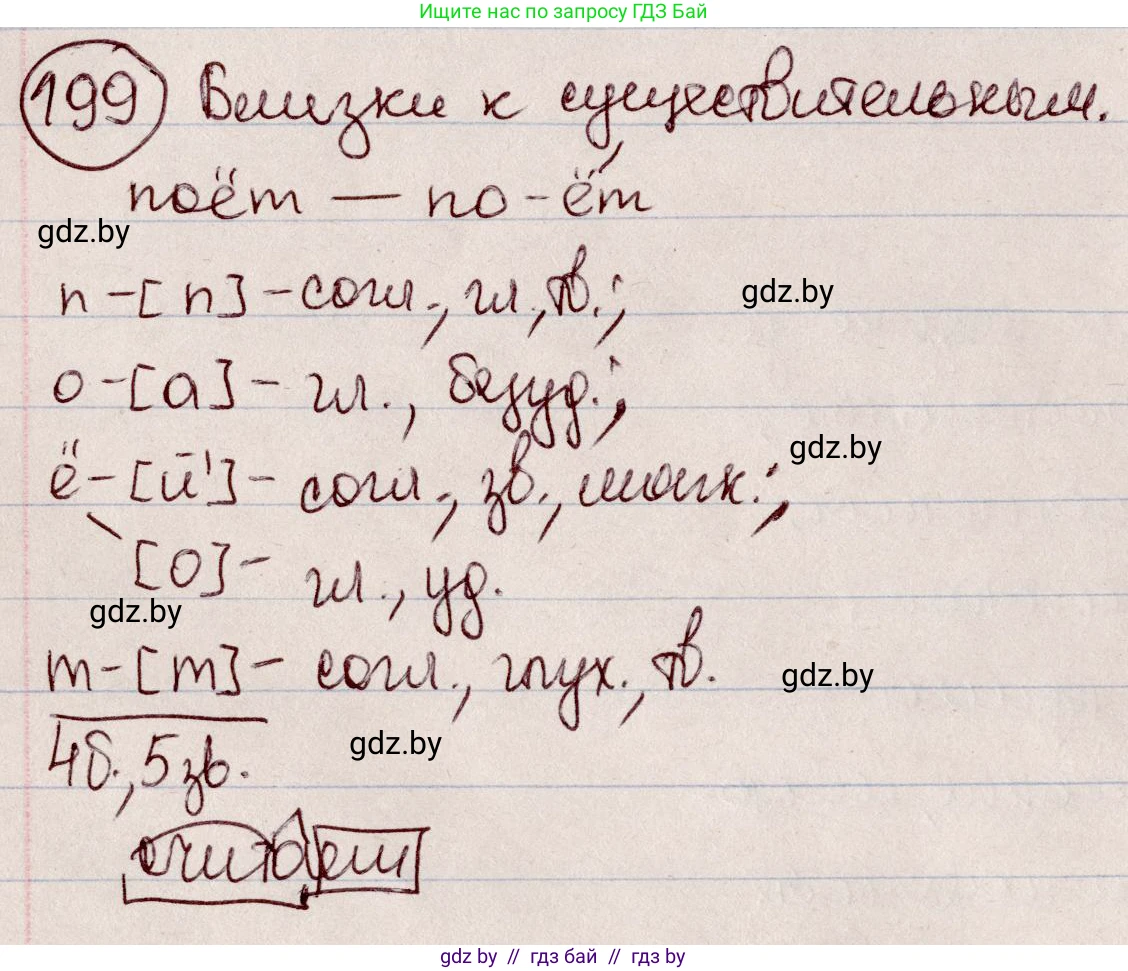 Ищите нас по запросу ГДЗ Бай
199 Близки к существительным.
поёт — по-ёт
gdz.by
п - [п] - согл., гл., тв.;
gdz.by
о - [а] - гл., безуд.;
gdz.by
ё - [й'] - согл., зв., мягк.;
[о] - гл., уд.
gdz.by
т - [т] - согл., глух., тв.
gdz.by
4б., 5 зв.
gdz.by
считаем
gdz by // гдз бай // гдз by